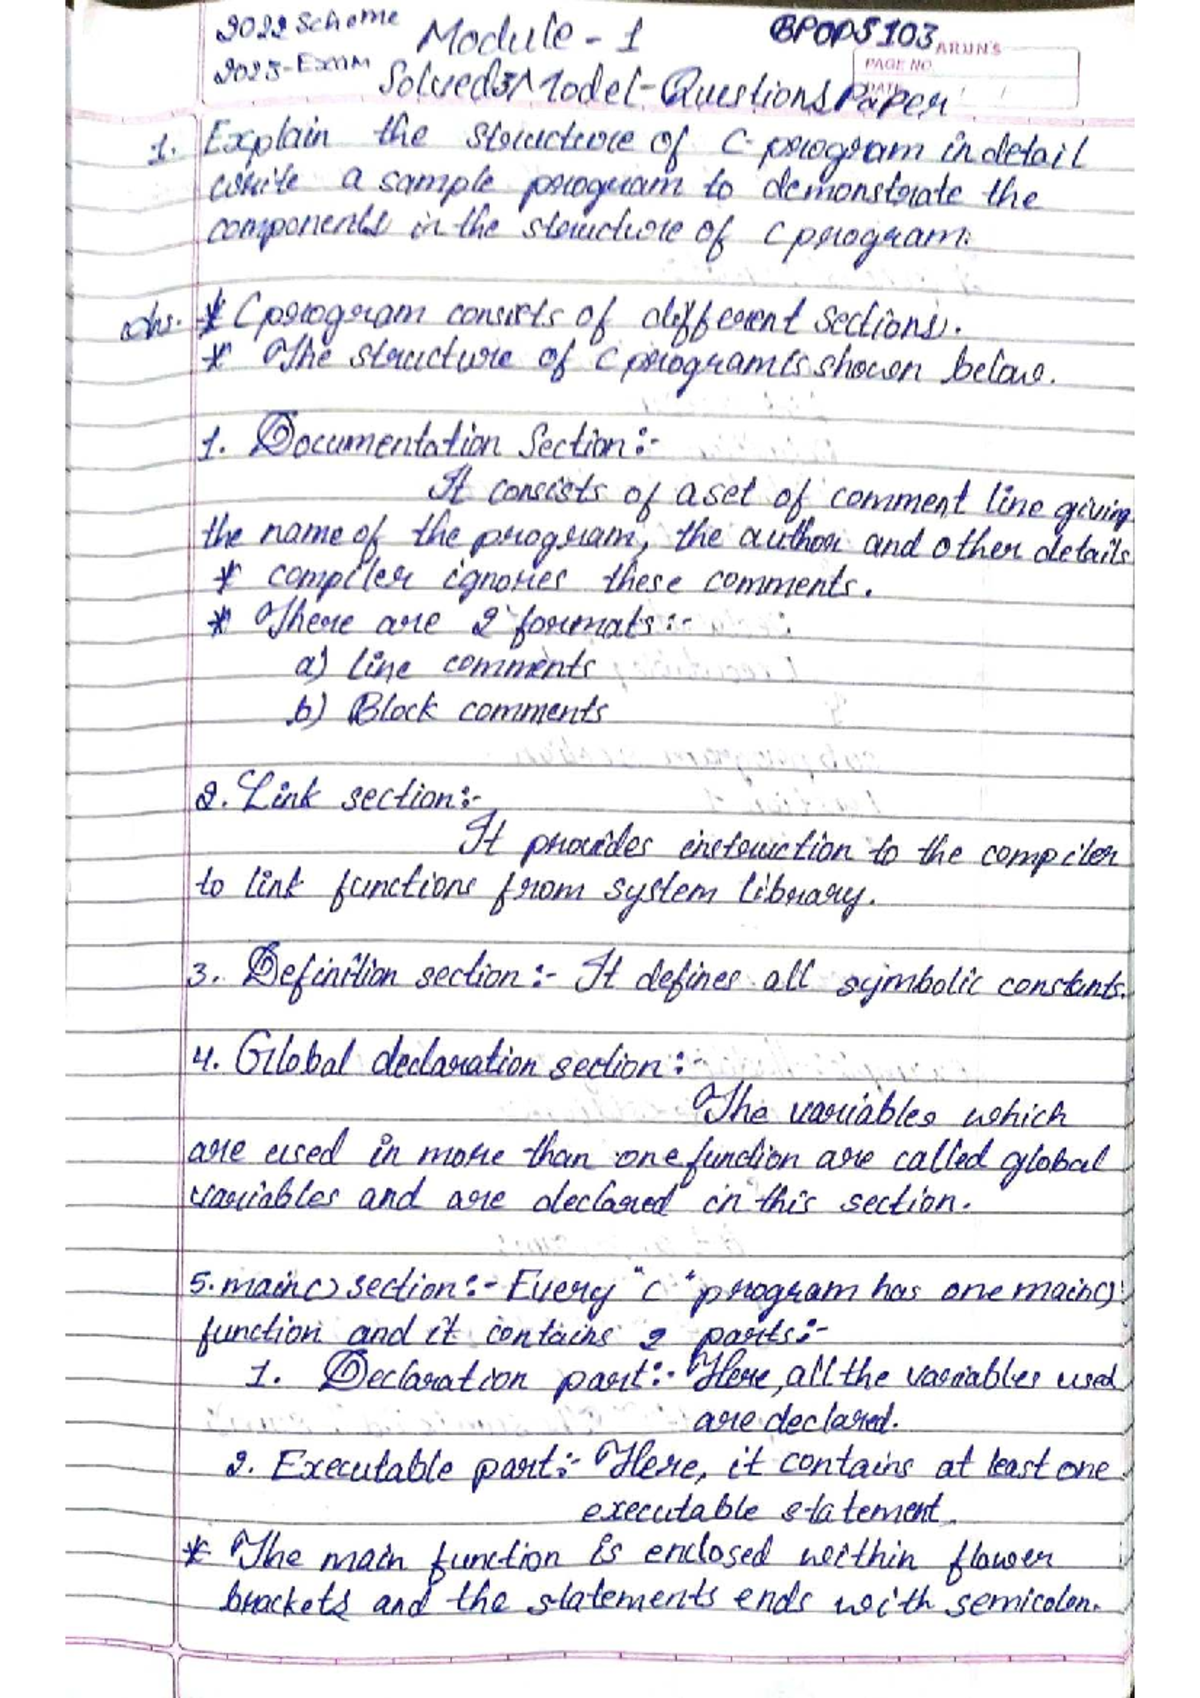 2022 Scheme Module - 1 BPOPS103
ARUN'S
2023-Exam Solved Model-Questions Paper
PAGE NO.
DATE / /
1. Explain the structure of C-program in detail
write a sample program to demonstrate the
components in the structure of C program.
Ans. * C program consists of different sections.
* The structure of C program is shown below.
1. Documentation Section:-
It consists of a set of comment line giving
the name of the program, the author and other details
* compiler ignores these comments.
* There are 2 formats:-
a) Line comments
b) Block comments
2. Link section:-
It provides instruction to the compiler
to link functions from system library.
3. Definition section:- It defines all symbolic constants.
4. Global declaration section:-
The variables which
are used in more than one function are called global
variables and are declared in this section.
5. main() section:- Every "C" program has one main()
function and it contains 2 parts:-
1. Declaration part:- Here, all the variables used
are declared.
2. Executable part:- Here, it contains at least one
executable statement.
* The main function is enclosed within flower
brackets and the statements ends with semicolon.